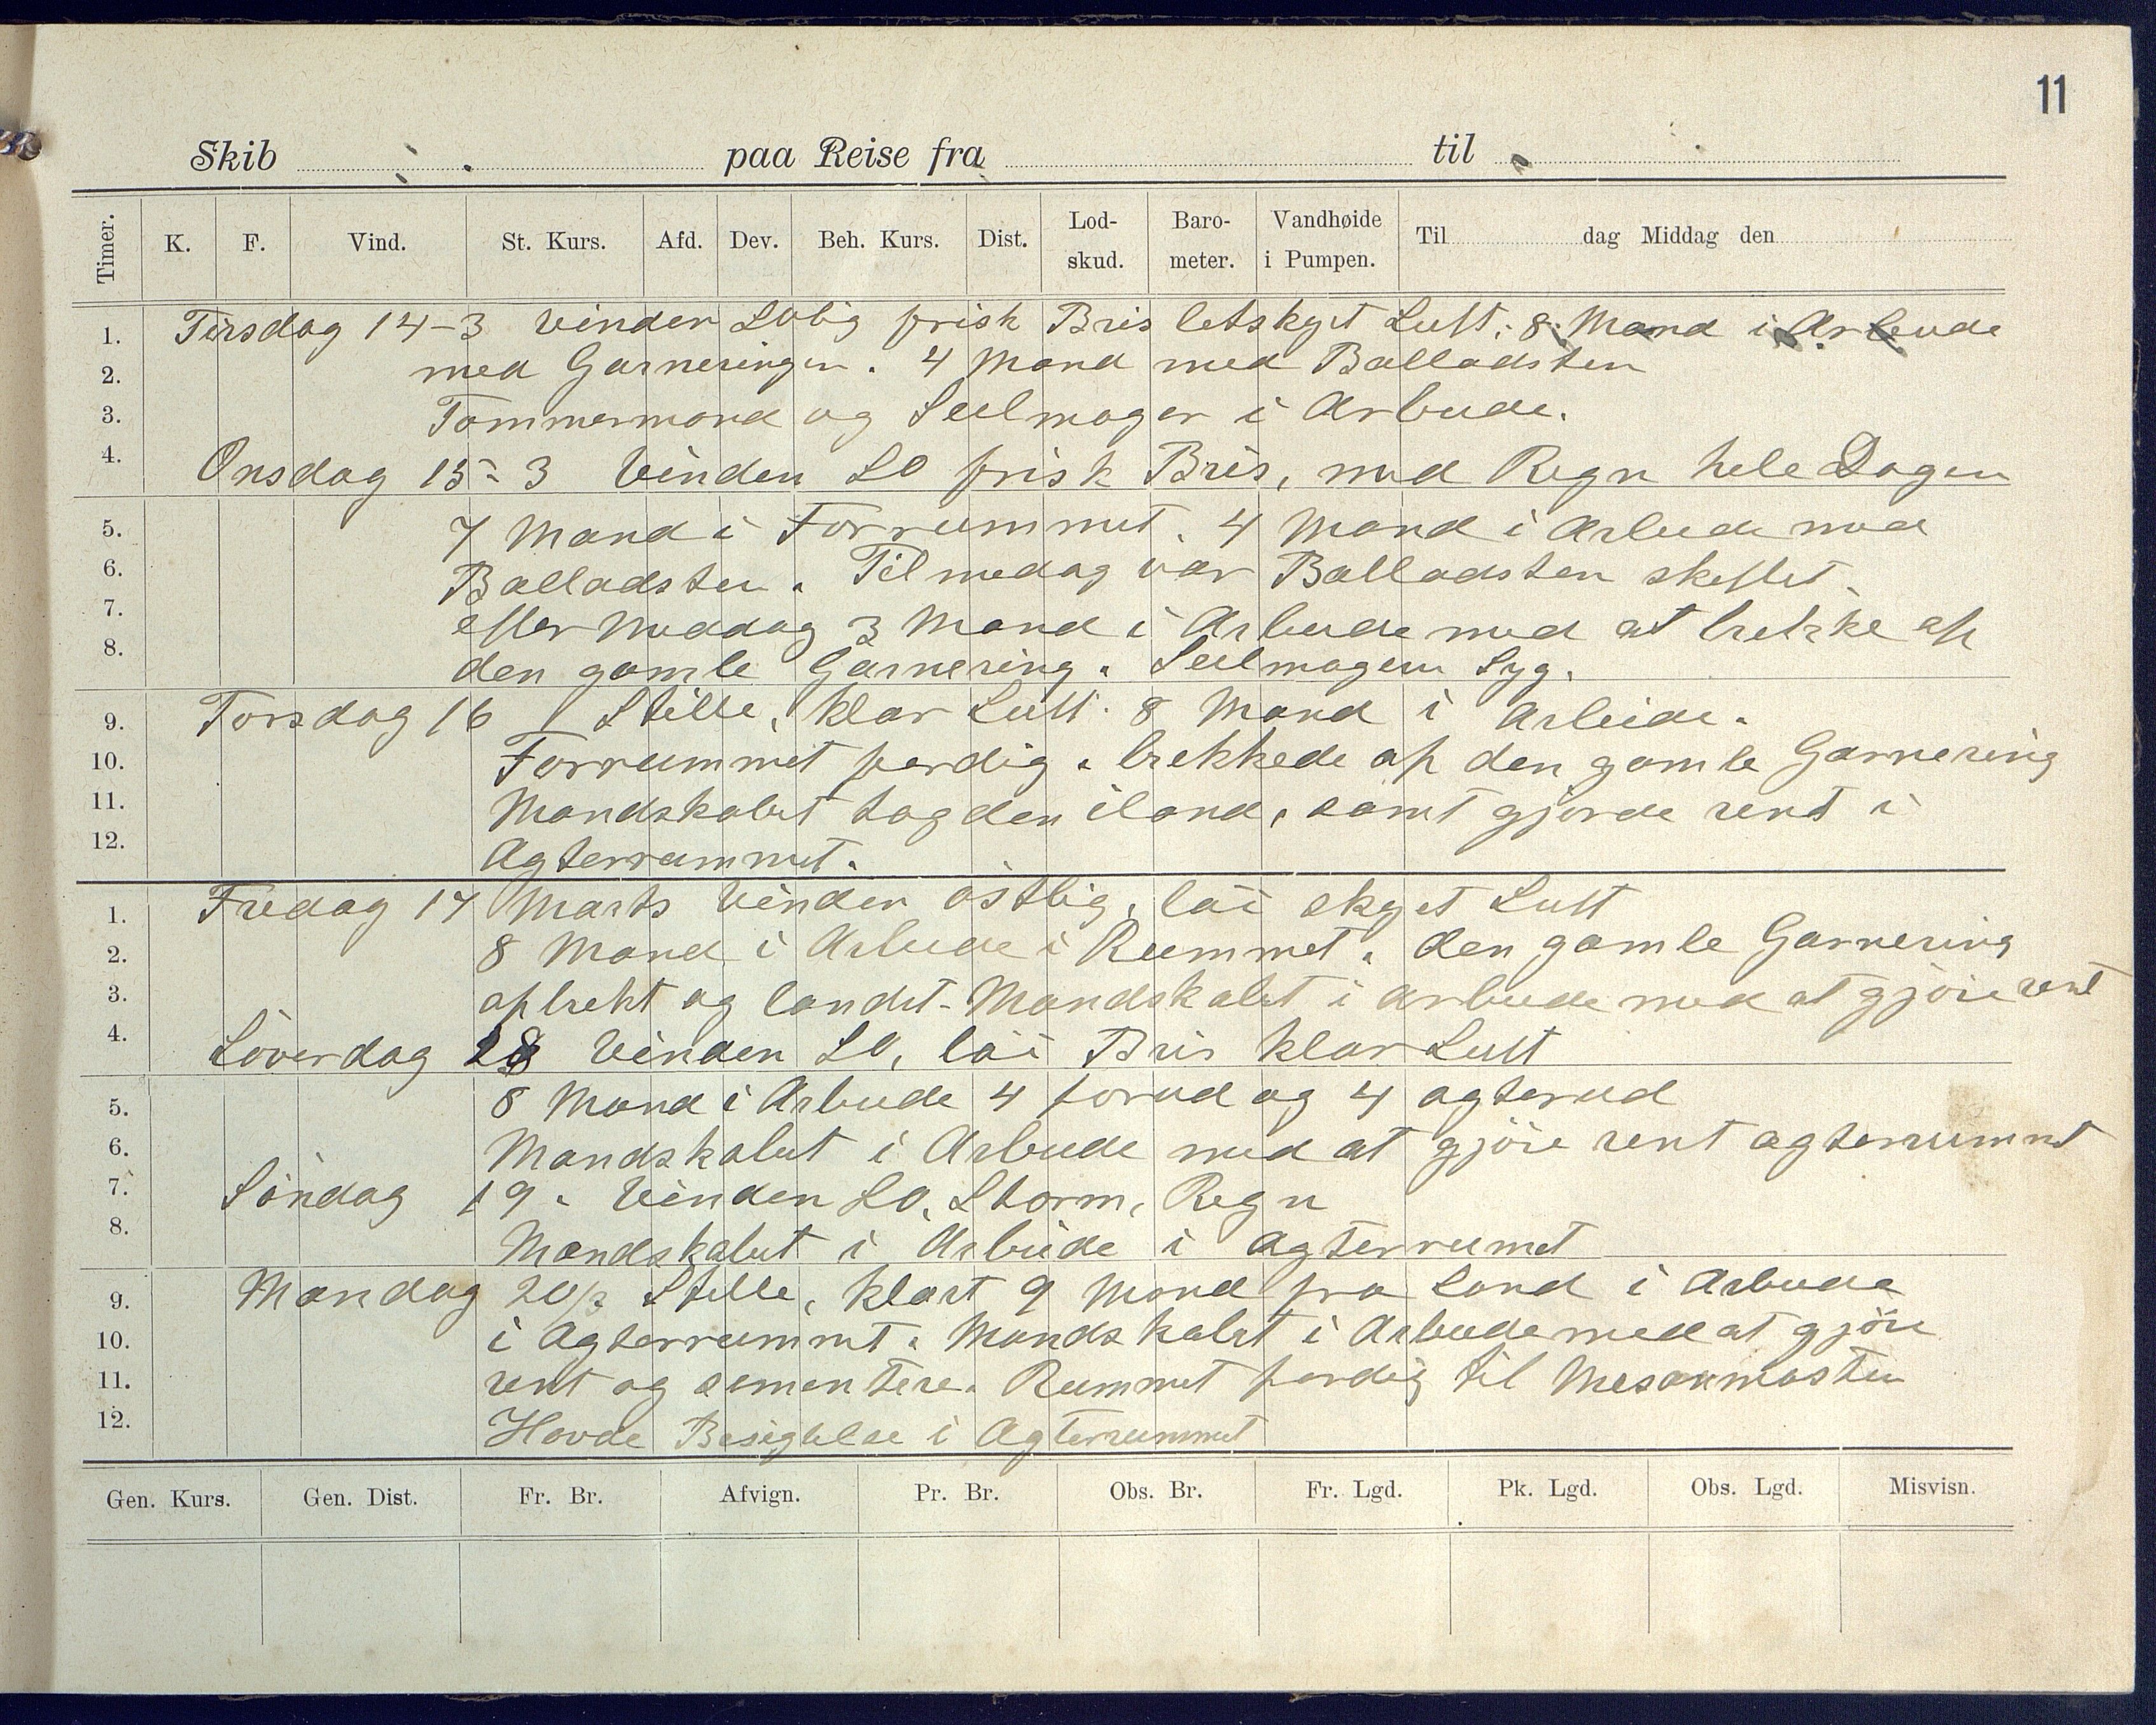 11
Skib paa Reise fra til
Timer. K. F. Vind. St. Kurs. Afd. Dev. Beh. Kurs. Dist. Lod-skud. Baro-meter. Vandhøide i Pumpen. Til dag Middag den
1. Tirsdag 14-3 Vinden SOlig frisk Bris letskyet Luft. 8 Mand i Arbeide
2. med Garneringen. 4 Mand med Balladsten
3. Tømmermand og Seilmager i Arbeide.
4. Onsdag 15-3 Vinden SO frisk Bris, med Regn hele Dagen
5. 7 Mand i Forrummet. 4 Mand i Arbeide med
6. Balladsten. Til medag var Balladsten skeftet.
7. efter Meddag 3 Mand i Arbeide med at brekke af
8. den gamle Garnering. Seilmageren Syg.
9. Torsdag 16 Stille, klar Luft. 8 Mand i Arbeide.
10. Forrummet ferdig. brekkede af den gamle Garnering
11. Mandskabet tog den iland, samt gjorde rent i
12. Agterrummet.
1. Fredag 17 Marts Vinden östlig, löi skyet Luft
2. 8 Mand i Arbeide i Rummet. den gamle Garnering
3. afbrekt og landet. Mandskabet i Arbeide med at gjöre rent
4. Löverdag 18 Vinden SO, löi Bris klar Luft
5. 8 Mand i Arbeide 4 forud og 4 agterud
6. Mandskabet i Arbeide med at gjöre rent agterrummet
7. Söndag 19. Vinden SO, Storm, Regn
8. Mandskabet i Arbeide i Agterrumet
9. Mandag 20/3 Stille, klart 9 Mand fra Land i Arbeide
10. i Agterrummet. Mandskabet i Arbeide med at gjöre
11. rent og sementere. Rummet ferdig til Mesanmasten
12. Havde Besigtelse i Agterrummet
Gen. Kurs. Gen. Dist. Fr. Br. Afvign. Pr. Br. Obs. Br. Fr. Lgd. Pk. Lgd. Obs. Lgd. Misvisn.